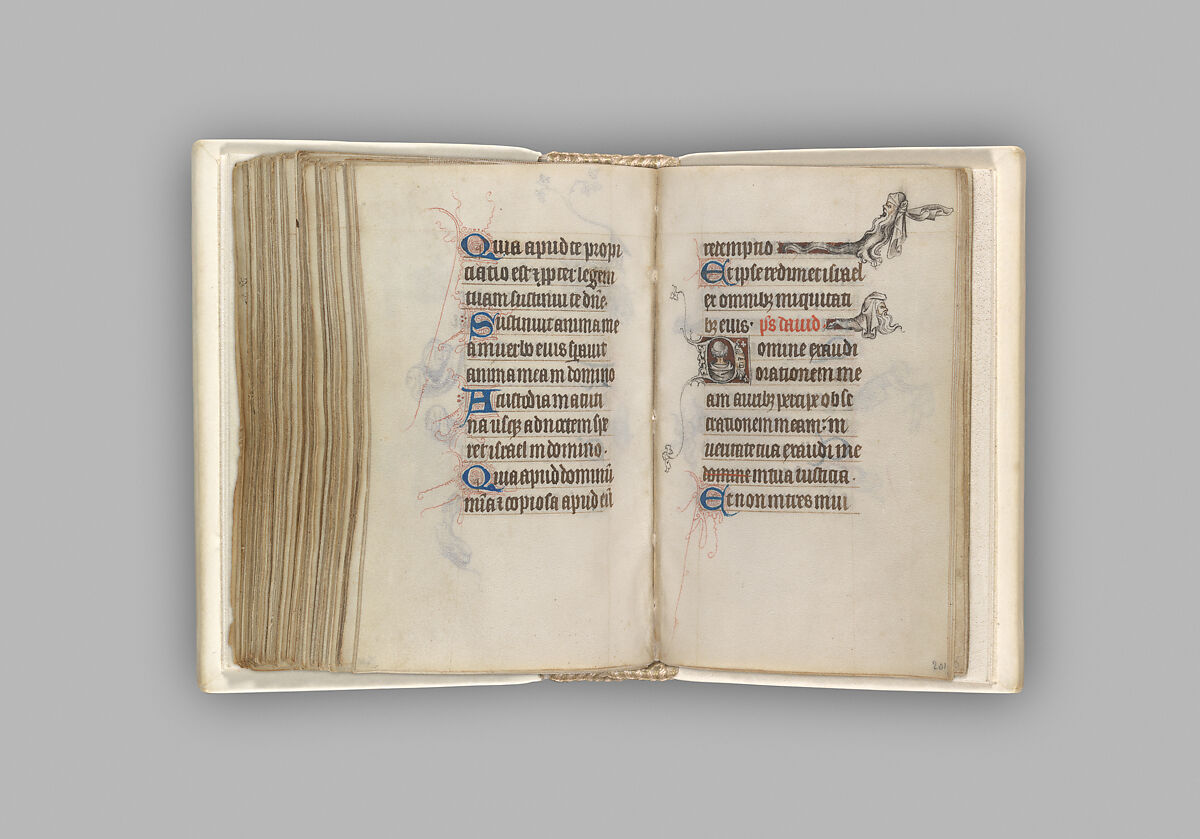 Quia apud te propi
tiatio est ⁊ ꝓpter legem
tuam sustinui te dn̄e.
Sustinuit anima me
a in uerbo eius sꝑauit
anima mea in domino
A custodia matuti
na usqꝫ ad noctem spe
ret israel in domino.
Quia apud dominū
mīa ⁊ copiosa apud eū
redemptio
Et ipse redimet israel
ex omnibꝫ iniquitati
bꝫ eius. ps dauid
Domine exaudi
orationem me
am auribꝫ percipe obse
crationem meam: in
ueritate tua exaudi me
domine in tua iusticia.
Et non intres in iu
201